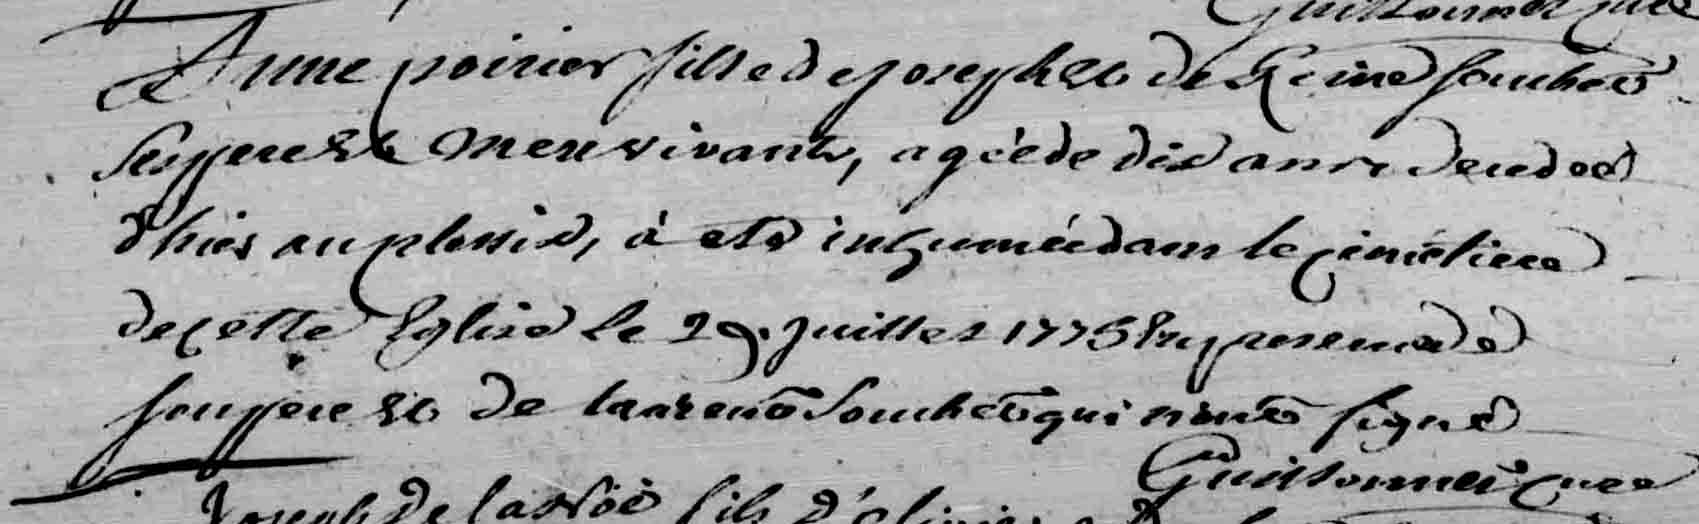 Guittonneau curé
Anne poirier fille de joseph et de Reine souchet
ses pere et mere vivants, agée de dix ans decedee
d'hier au plessix, à eté inhumée dans le cimétiere
de cette Eglise le 29. juillet 1775 En presence de
son pere et de Souchet qui n'ont signé
curé
Joseph De la fils d'olivier